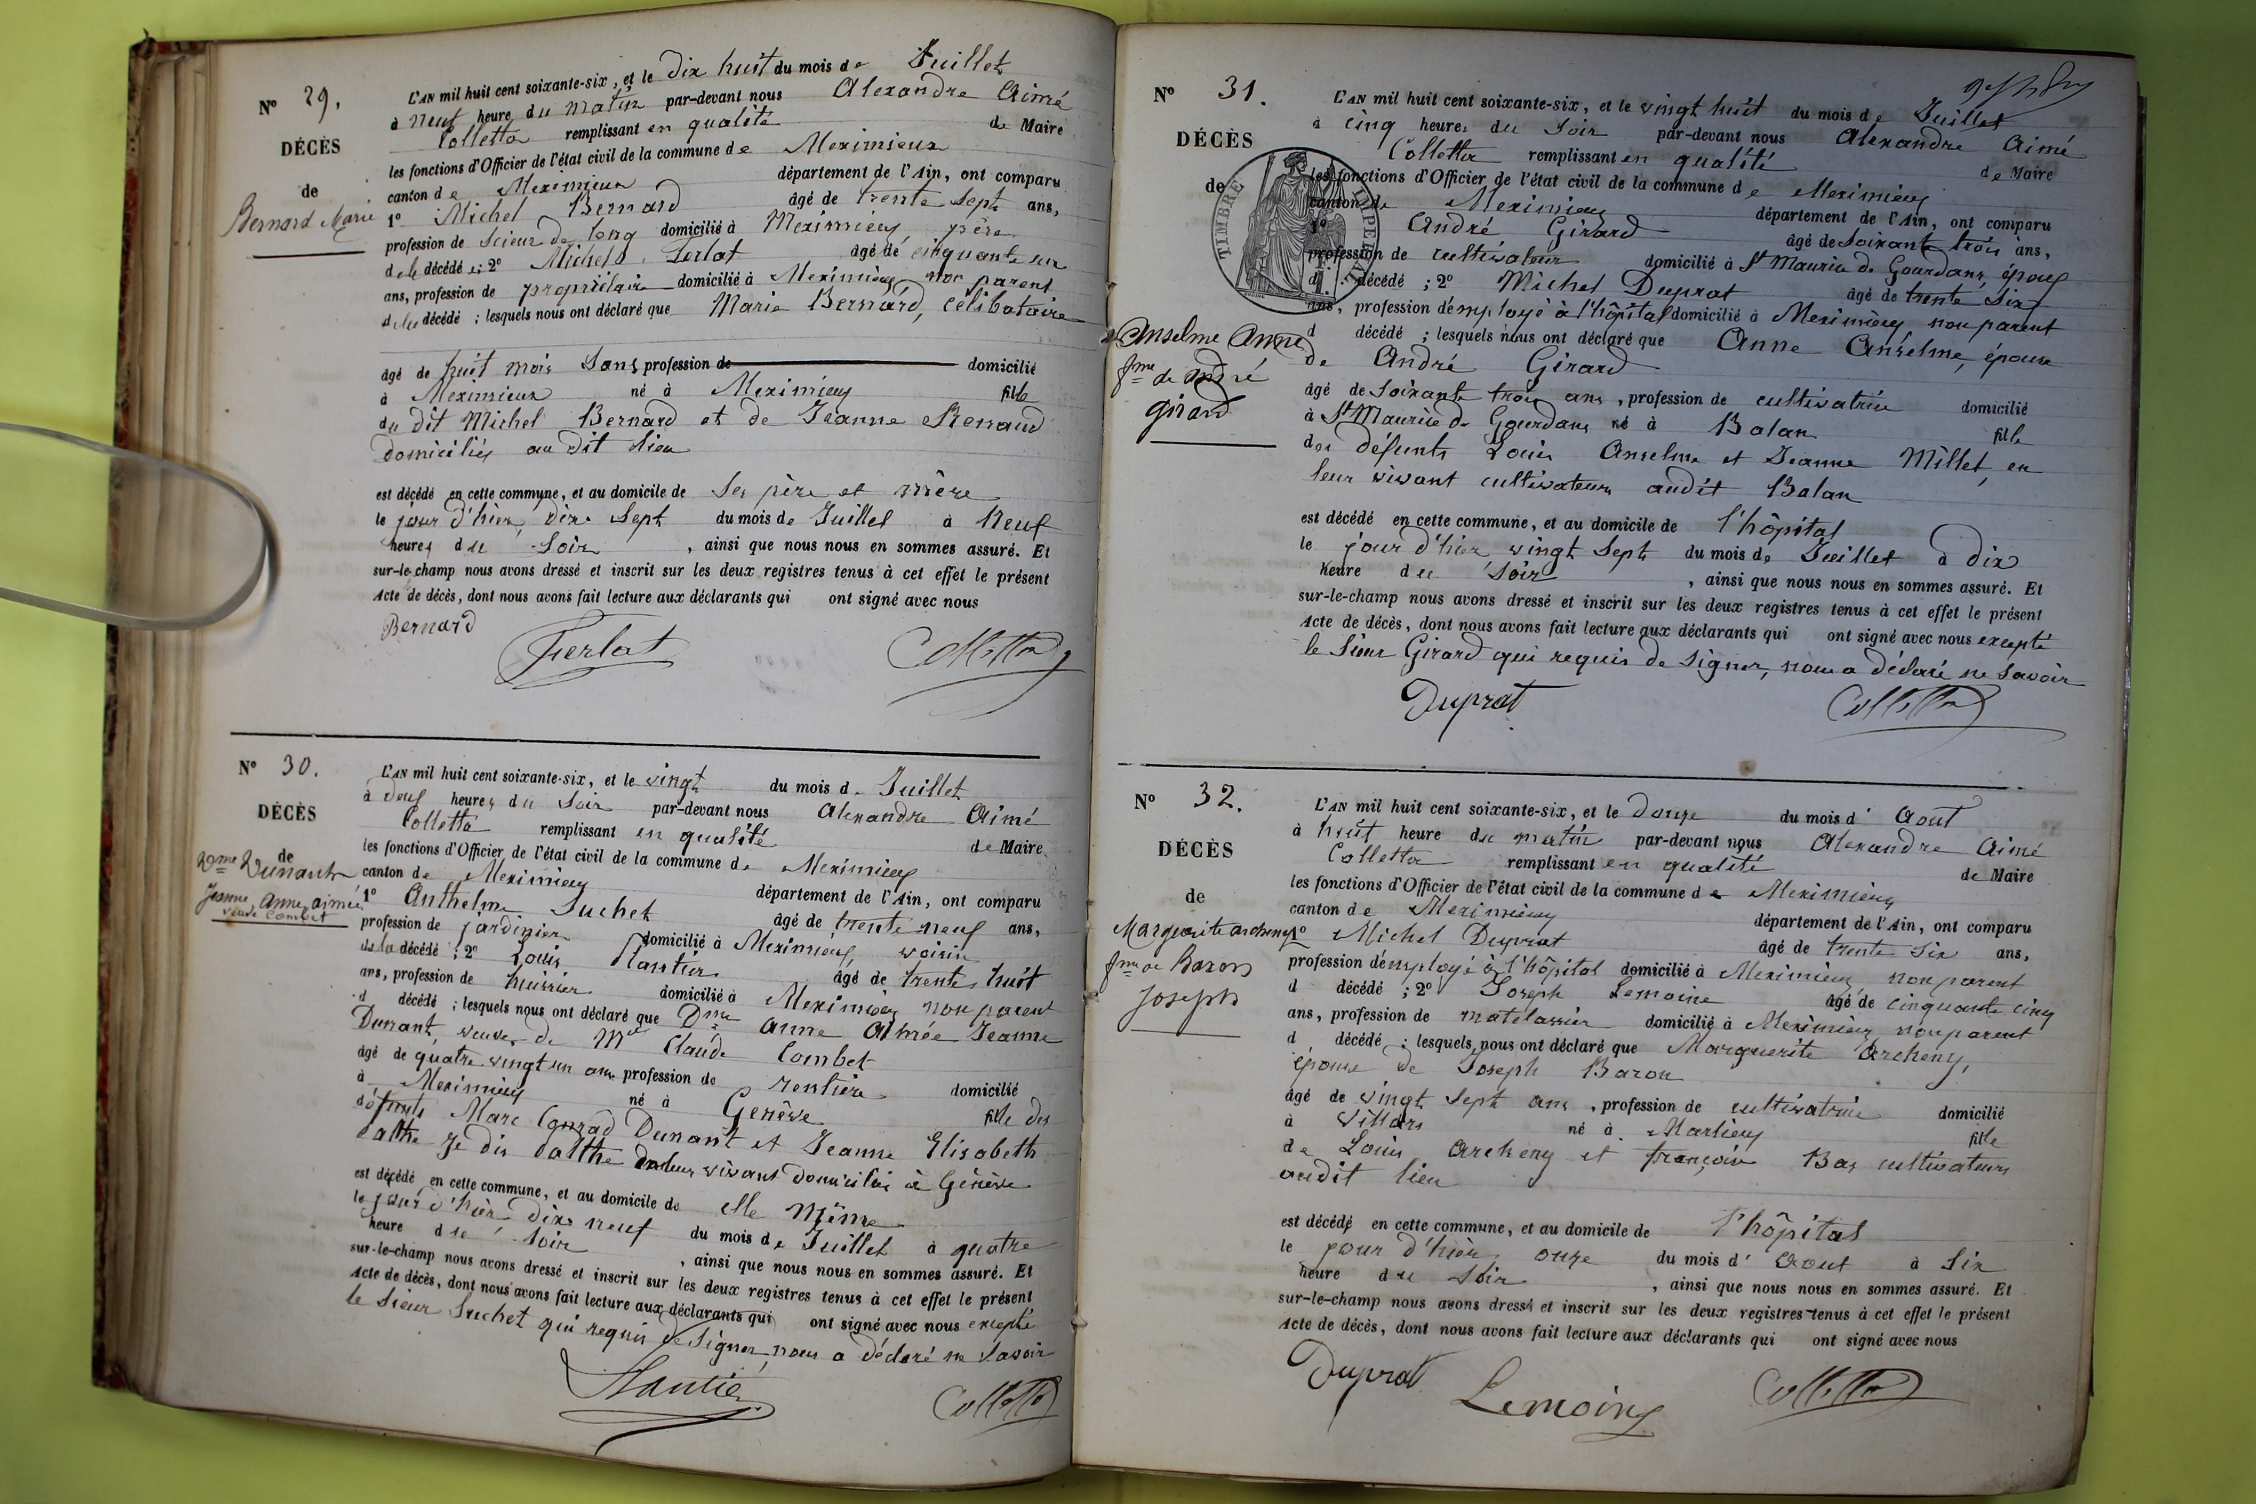 N° 29.
DÉCÈS
de
Bernard Marie
L'AN mil huit cent soixante-six, et le dix huit du mois de Juillet
à neuf heure du matin par-devant nous Alexandre Aimé
Colletta remplissant en qualité de Maire
les fonctions d'Officier de l'état civil de la commune de Meximieux
canton de Meximieux département de l'Ain, ont comparu
1° Michel Bernard âgé de trente sept ans,
profession de Scieur de long domicilié à Meximieux, père
de la décédée; 2° Michel Ferlat âgé de cinquante un
ans, profession de propriétaire domicilié à Meximieux non parent
de la décédé ; lesquels nous ont déclaré que Marie Bernard, célibataire
âgé de huit mois Sans profession de domicilié
à Meximieux né à Meximieux fille
du dit Michel Bernard et de Jeanne Renaud
domiciliés au dit lieu
est décédé en cette commune, et au domicile de Ses père et mère
le jour d'hier, dix Sept du mois de Juillet à Neuf
heures du Soir , ainsi que nous nous en sommes assuré. Et
sur-le-champ nous avons dressé et inscrit sur les deux registres tenus à cet effet le présent
Acte de décès, dont nous avons fait lecture aux déclarants qui ont signé avec nous
Bernard Ferlat Colletta
N° 30.
DÉCÈS
de
Dme Dunant
Jeanne, Anne, aimée
veuve Combet
L'AN mil huit cent soixante-six, et le vingt du mois de Juillet
à deux heures du Soir par-devant nous Alexandre Aimé
Colletta remplissant en qualité de Maire
les fonctions d'Officier de l'état civil de la commune de Meximieux
canton de Meximieux département de l'Ain, ont comparu
1° Anthelme Suchet âgé de trente neuf ans,
profession de jardinier domicilié à Meximieux, voisin
de la décédé ; 2° Louis Plantier âgé de trente huit
ans, profession de huissier domicilié à Meximieux non parent
d décédé ; lesquels nous ont déclaré que Dme Anne Aimée Jeanne
Dunant, veuve de Mr Claude Combet
âgé de quatre vingt un ans profession de rentière domicilié
à Meximieux né à Genève fille des
défunts Marc Conrad Dunant et Jeanne Elisabeth
dalthe Je dis dalthe en leur vivant domiciliés à Genève
est décédé en cette commune, et au domicile de elle même
le jour d'hier dix neuf du mois de Juillet à quatre
heure du Soir , ainsi que nous nous en sommes assuré. Et
sur-le-champ nous avons dressé et inscrit sur les deux registres tenus à cet effet le présent
Acte de décès, dont nous avons fait lecture aux déclarants qui ont signé avec nous excepté
le Sieur Suchet qui requis de Signer, nous a déclaré ne Savoir
Plantier Colletta
N° 31.
DÉCÈS
de
TIMBRE IMPERIAL
Anselme Anne
fme de André
Girard
L'AN mil huit cent soixante-six, et le vingt huit du mois de Juillet
à cinq heures du Soir par-devant nous Alexandre Aimé
Colletta remplissant en qualité de Maire
les fonctions d'Officier de l'état civil de la commune de Meximieux
canton de Meximieux département de l'Ain, ont comparu
1° André Girard âgé de Soixante trois ans,
profession de cultivateur domicilié à St Maurice de Gourdans, époux
d décédé ; 2° Michel Duprat âgé de trente Six
ans, profession d'employé à l'hôpital domicilié à Meximieux, non parent
d décédé ; lesquels nous ont déclaré que Anne Anselme, épouse
de André Girard
âgé de Soixante trois ans , profession de cultivatrice domicilié
à St Maurice de Gourdans né à Balan fille
des défunts Louis Anselme et Jeanne Millet, en
leur vivant cultivateurs audit Balan
est décédé en cette commune, et au domicile de l'hôpital
le jour d'hier vingt Sept du mois de Juillet à dix
heure du Soir , ainsi que nous nous en sommes assuré. Et
sur-le-champ nous avons dressé et inscrit sur les deux registres tenus à cet effet le présent
Acte de décès, dont nous avons fait lecture aux déclarants qui ont signé avec nous excepté
le Sieur Girard qui requis de Signer, nous a déclaré ne Savoir
Duprat Colletta
N° 32.
DÉCÈS
de
Marguerite archeny
fme de Baron
Joseph
L'AN mil huit cent soixante-six, et le douze du mois d' Aout
à huit heure du matin par-devant nous Alexandre Aimé
Colletta remplissant en qualité de Maire
les fonctions d'Officier de l'état civil de la commune de Meximieux
canton de Meximieux département de l'Ain, ont comparu
1° Michel Duprat âgé de trente Six ans,
profession d'employé à l'hôpital domicilié à Meximieux non parent
d décédé ; 2° Joseph Lemoine âgé de cinquante cinq
ans, profession de matelassier domicilié à Meximieux non parent
d décédé ; lesquels nous ont déclaré que Marguerite Archeny,
épouse de Joseph Baron
âgé de vingt Sept ans , profession de cultivatrice domicilié
à Villars né à Marlieux fille
de Louis Archeny et françoise Bas cultivateurs
audit lieu
est décédé en cette commune, et au domicile de l'hôpital
le jour d'hier onze du mois d' Aout à Six
heure du Soir , ainsi que nous nous en sommes assuré. Et
sur-le-champ nous avons dressé et inscrit sur les deux registres tenus à cet effet le présent
Acte de décès, dont nous avons fait lecture aux déclarants qui ont signé avec nous
Duprat Lemoine Colletta